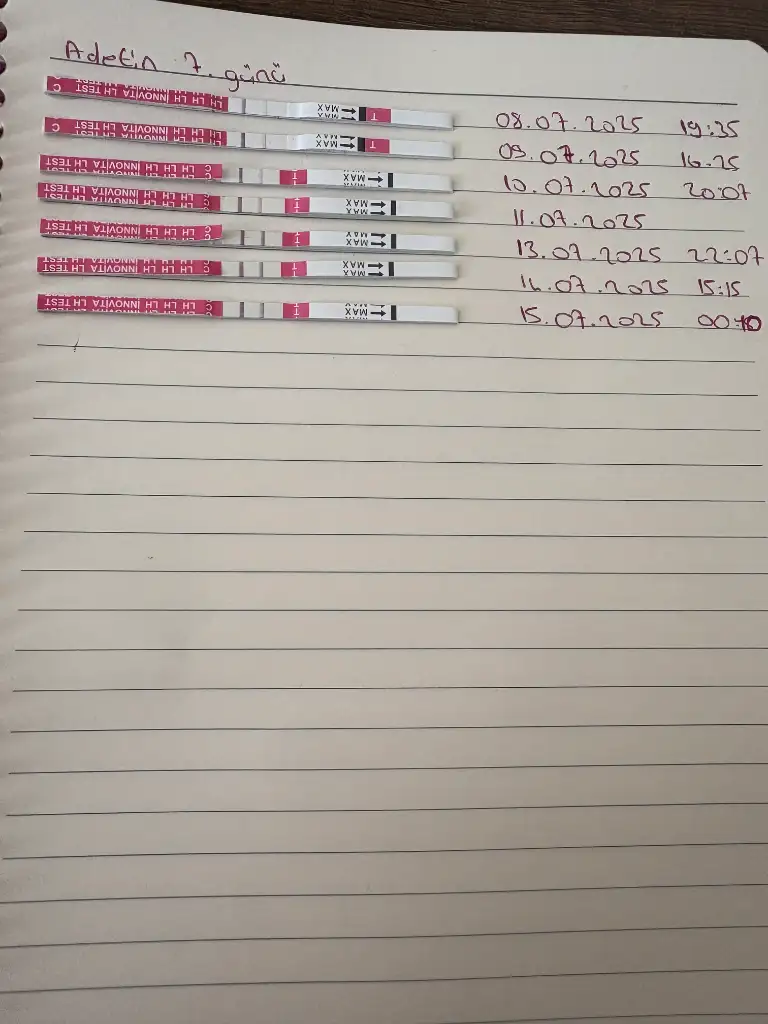 Adetin 7. günü
C INNOVITA LH TEST LH LH LH MAX T 08.07.2025 19:35
C INNOVITA LH TEST LH LH LH MAX T 09.07.2025 16.25
INNOVITA LH TEST LH LH LH C T MAX 10.07.2025 20:07
INNOVITA LH TEST LH LH LH C T MAX 11.07.2025
INNOVITA LH TEST LH LH LH C T MAX 13.07.2025 22:07
INNOVITA LH TEST LH LH LH C T MAX 14.07.2025 15:15
INNOVITA LH TEST LH LH LH C T MAX 15.07.2025